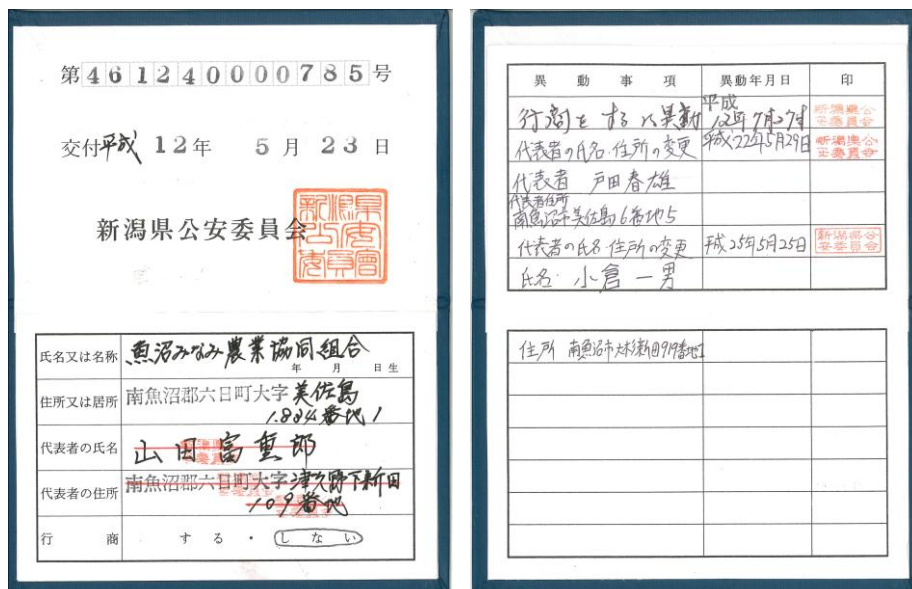 第461240000785号
交付平成12年 5月23日
新潟県公安委員会
氏名又は名称 魚沼みなみ農業協同組合
年 月 日生
住所又は居所 南魚沼郡六日町大字美佐島
1.834番地1
代表者の氏名 山田富重郎
代表者の住所 南魚沼郡六日町大字津久野下新田
109番地
行商 する・しない
異動事項 異動年月日 印
行商をするに異動 平成12年7月27日 新潟県公安委員会
代表者の氏名・住所の変更 平成22年5月29日 新潟県公安委員会
代表者 戸田春雄
代表者住所
南魚沼市美佐島6番地5
代表者の氏名・住所の変更 平成25年5月25日 新潟県公安委員会
氏名 小倉一男
住所 南魚沼市大杉新田919番地1